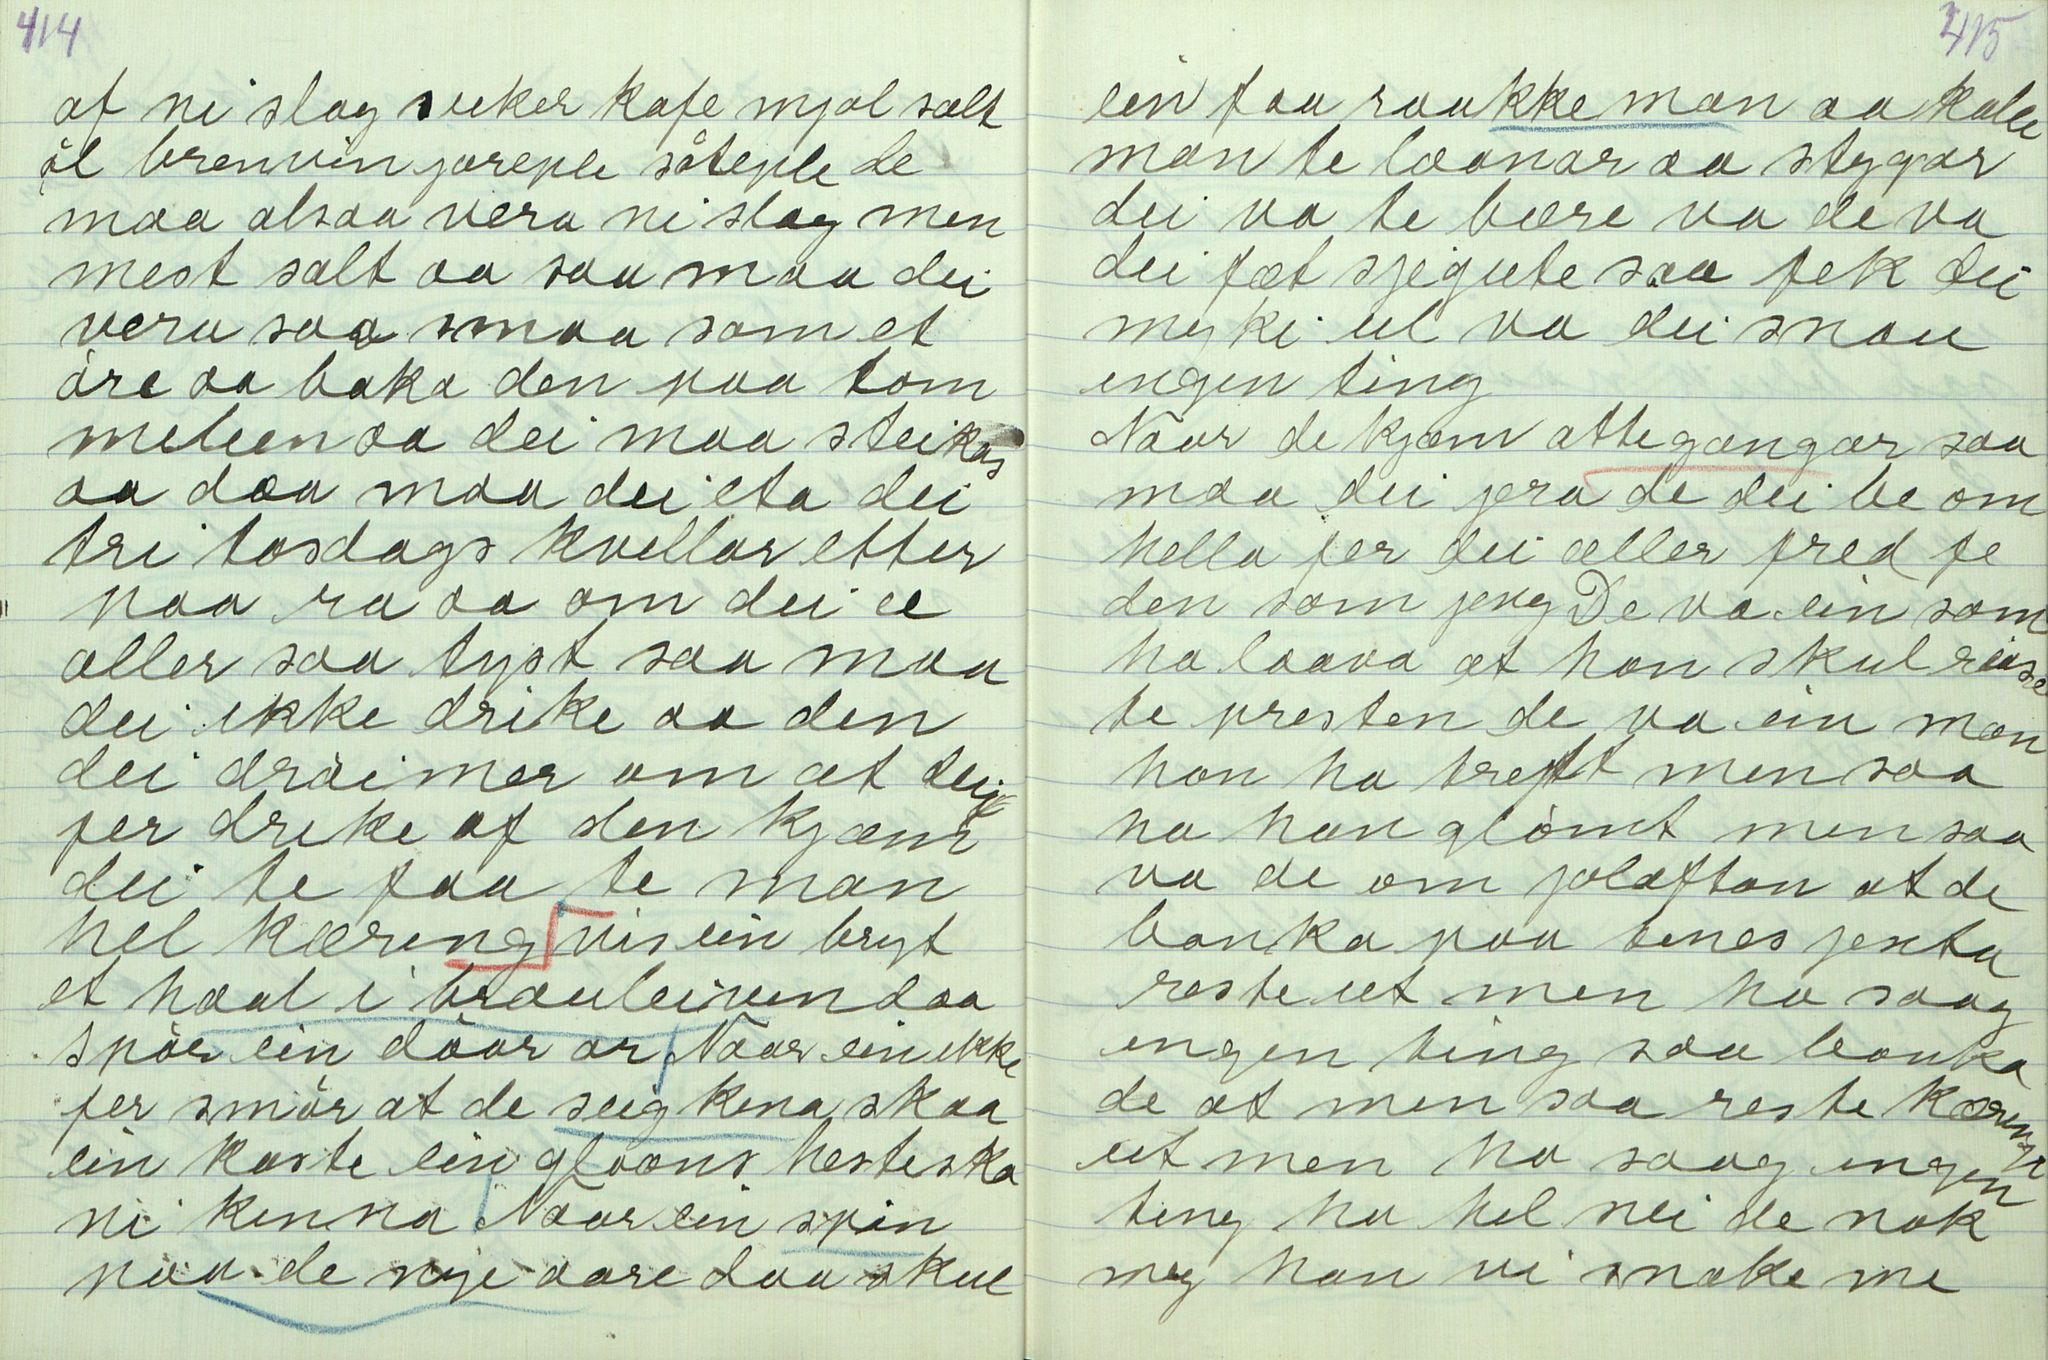 414
af ni slag suker kafe mjøl salt
øl brenvin joreple søteple de
maa alsaa vera ni slag men
mest salt aa saa maa dei
vera saa smaa som et
øre aa baka den paa tom
meleen aa dei maa steikas
aa daa maa dei eta dei
tri tosdags kvellar etter
paa ra aa om dei ee
aller saa tyst saa maa
dei ikke drike aa den
dei drøimer om at dei
fer drike af den kjæm
dei te faa te man
hel kæreng vis ein bryt
et haal i brauleiven daa
spør ein døar ar Naar ein ikke
fer smør at de seig kena skaa
ein kaste ein gloans hesteska
ni kenna Naar ein spin
paa de nye aare daa skul
415
ein faa raukkeman aa kalei
man te laanar aa stygar
dei va te bære va de va
dei fæt sjegute saa fek dei
myki ul va dei snau
engen ting
Naar de kjæm attegangar saa
maa dei jera de dei be om
hella fer dei aller fred fe
den som jeng De va ein som
ha laava at han skul reise
te presten de va ein man
han ha treft men saa
ha han glømt men saa
va de om jolaftan at de
banka paa tenesjenta
reste ut men ho saag
engen ting saa banka
de at men saa reste kærengæ
ut men ho saag engen
teng ho hel nei de nok
meg han vi snake me